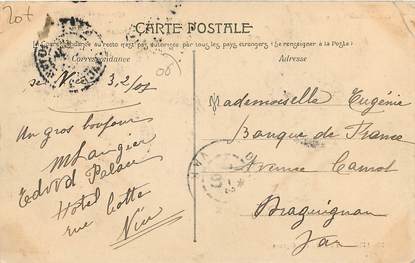 20+
CARTE POSTALE
La Correspondance au recto n'est pas autorisée par tous les pays étrangers (Se renseigner à la Poste)
Correspondance
Adresse
Nice 3, 2/08
08
Mademoiselle Eugénie
Banque de France
Avenue Carnot
Draguignan
Var
Un gros
M Laugier
Palace
Hotel
rue Cotta
Nice